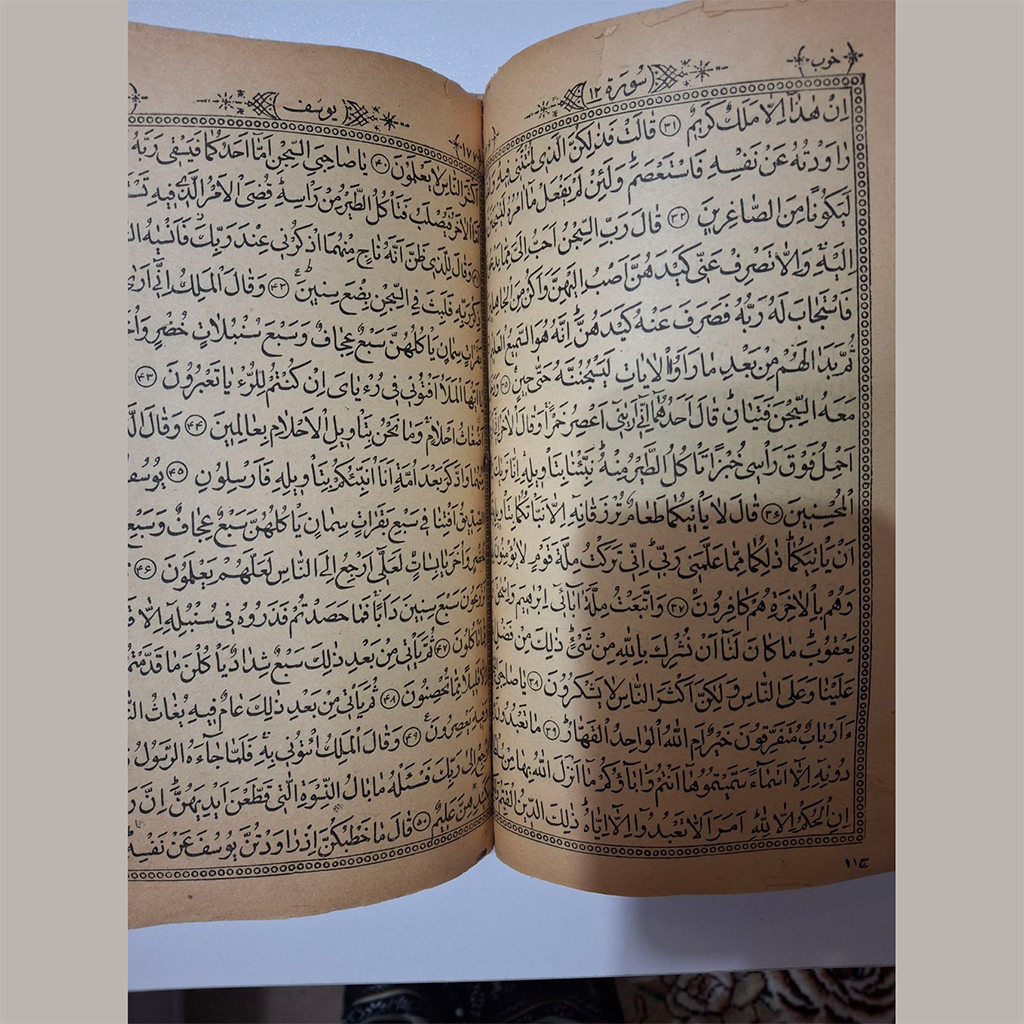 خوب
سُورَة ۱۲
اِنْ هٰذٰٓا اِلّٰا مَلَكٌ كَرٖيمٌ ۳۱ قٰالَتْ فَذٰلِكُنَّ الَّذٖى لُمْتُنَّنٖى فٖيهِ
رٰاوَدْتُهُ عَنْ نَفْسِهٖ فَاسْتَعْصَمَ وَلَئِنْ لَمْ يَفْعَلْ مٰٓا اٰمُرُهُ لَيُسْجَنَنَّ
لَيَكُونًا مِنَ الصّٰاغِرٖينَ ۳۲ قٰالَ رَبِّ السِّجْنُ اَحَبُّ اِلَىَّ مِمّٰا يَدْعُونَنٖى
اِلَيْهِ وَاِلّٰا تَصْرِفْ عَنّٖى كَيْدَهُنَّ اَصْبُ اِلَيْهِنَّ وَاَكُنْ مِنَ الْجٰاهِلٖينَ
فَاسْتَجٰابَ لَهُ رَبُّهُ فَصَرَفَ عَنْهُ كَيْدَهُنَّ اِنَّهُ هُوَ السَّمٖيعُ الْعَلٖيمُ
ثُمَّ بَدٰا لَهُمْ مِنْ بَعْدِ مٰا رَاَوُا الْاٰيٰاتِ لَيَسْجُنُنَّهُ حَتّٰى حٖينٍ ۳۵
مَعَهُ السِّجْنَ فَتَيٰانِ قٰالَ اَحَدُهُمٰٓا اِنّٖٓى اَرٰينٖٓى اَعْصِرُ خَمْرًا وَقٰالَ الْاٰخَرُ اِنّٖٓى
اَحْمِلُ فَوْقَ رَاْسٖى خُبْزًا تَاْكُلُ الطَّيْرُ مِنْهُ نَبِّئْنٰا بِتَاْوٖيلِهٖ اِنّٰا نَرٰيكَ
الْمُحْسِنٖينَ ۳۶ قٰالَ لٰا يَاْتٖيكُمٰا طَعٰامٌ تُرْزَقٰانِهٖٓ اِلّٰا نَبَّاْتُكُمٰا بِتَاْوٖيلِهٖ
اَنْ يَاْتِيَكُمٰا ذٰلِكُمٰا مِمّٰا عَلَّمَنٖى رَبّٖى اِنّٖى تَرَكْتُ مِلَّةَ قَوْمٍ لٰا يُؤْمِنُونَ
وَهُمْ بِالْاٰخِرَةِ هُمْ كٰافِرُونَ ۳۷ وَاتَّبَعْتُ مِلَّةَ اٰبٰٓائٖٓى اِبْرٰهٖيمَ وَاِسْحٰقَ
يَعْقُوبَ مٰا كٰانَ لَنٰٓا اَنْ نُشْرِكَ بِاللّٰهِ مِنْ شَىْءٍ ذٰلِكَ مِنْ فَضْلِ
عَلَيْنٰا وَعَلَى النّٰاسِ وَلٰكِنَّ اَكْثَرَ النّٰاسِ لٰا يَشْكُرُونَ ۳۸ يٰا صٰاحِبَىِ
ءَاَرْبٰابٌ مُتَفَرِّقُونَ خَيْرٌ اَمِ اللّٰهُ الْوٰاحِدُ الْقَهّٰارُ ۳۹ مٰا تَعْبُدُونَ
دُونِهٖٓ اِلّٰٓا اَسْمٰٓاءً سَمَّيْتُمُوهٰٓا اَنْتُمْ وَاٰبٰٓاؤُكُمْ مٰٓا اَنْزَلَ اللّٰهُ بِهٰا مِنْ
اِنِ الْحُكْمُ اِلّٰا لِلّٰهِ اَمَرَ اَلّٰا تَعْبُدُٓوا اِلّٰٓا اِيّٰاهُ ذٰلِكَ الدّٖينُ الْقَيِّمُ
يوُسُف
اَكْثَرَ النّٰاسِ لٰا يَعْلَمُونَ ۴۰ يٰا صٰاحِبَىِ السِّجْنِ اَمّٰٓا اَحَدُكُمٰا فَيَسْقٖى رَبَّهُ
الْاٰخَرُ فَيُصْلَبُ فَتَاْكُلُ الطَّيْرُ مِنْ رَاْسِهٖ قُضِىَ الْاَمْرُ الَّذٖى فٖيهِ
وَقٰالَ لِلَّذٖى ظَنَّ اَنَّهُ نٰاجٍ مِنْهُمَا اذْكُرْنٖى عِنْدَ رَبِّكَ فَاَنْسٰيهُ
ذِكْرَ رَبِّهٖ فَلَبِثَ فِى السِّجْنِ بِضْعَ سِنٖينَ ۴۲ وَقٰالَ الْمَلِكُ اِنّٖٓى اَرٰى
بَقَرٰاتٍ سِمٰانٍ يَاْكُلُهُنَّ سَبْعٌ عِجٰافٌ وَسَبْعَ سُنْبُلٰاتٍ خُضْرٍ وَاُخَرَ
يٰٓا اَيُّهَا الْمَلَاُ اَفْتُونٖى فٖى رُءْيٰاىَ اِنْ كُنْتُمْ لِلرُّءْيٰا تَعْبُرُونَ ۴۳
اَضْغٰاثُ اَحْلٰامٍ وَمٰا نَحْنُ بِتَاْوٖيلِ الْاَحْلٰامِ بِعٰالِمٖينَ ۴۴ وَقٰالَ
مِنْهُمٰا وَادَّكَرَ بَعْدَ اُمَّةٍ اَنَا اُنَبِّئُكُمْ بِتَاْوٖيلِهٖ فَاَرْسِلُونِ ۴۵ يُوسُفُ
الصِّدّٖيقُ اَفْتِنٰا فٖى سَبْعِ بَقَرٰاتٍ سِمٰانٍ يَاْكُلُهُنَّ سَبْعٌ عِجٰافٌ وَسَبْعِ
خُضْرٍ وَاُخَرَ يٰابِسٰاتٍ لَعَلّٖٓى اَرْجِعُ اِلَى النّٰاسِ لَعَلَّهُمْ يَعْلَمُونَ ۴۶
تَزْرَعُونَ سَبْعَ سِنٖينَ دَاَبًا فَمٰا حَصَدْتُمْ فَذَرُوهُ فٖى سُنْبُلِهٖٓ اِلّٰا
مِمّٰا تَاْكُلُونَ ۴۷ ثُمَّ يَاْتٖى مِنْ بَعْدِ ذٰلِكَ سَبْعٌ شِدٰادٌ يَاْكُلْنَ مٰا قَدَّمْتُمْ
اِلّٰا قَلٖيلًا مِمّٰا تُحْصِنُونَ ۴۸ ثُمَّ يَاْتٖى مِنْ بَعْدِ ذٰلِكَ عٰامٌ فٖيهِ يُغٰاثُ
وَفٖيهِ يَعْصِرُونَ ۴۹ وَقٰالَ الْمَلِكُ ائْتُونٖى بِهٖ فَلَمّٰا جٰٓاءَهُ الرَّسُولُ
ارْجِعْ اِلٰى رَبِّكَ فَسْئَلْهُ مٰا بٰالُ النِّسْوَةِ الّٰتٖى قَطَّعْنَ اَيْدِيَهُنَّ اِنَّ
بِكَيْدِهِنَّ عَلٖيمٌ ۵۰ قٰالَ مٰا خَطْبُكُنَّ اِذْ رٰاوَدْتُنَّ يُوسُفَ عَنْ نَفْسِهٖ